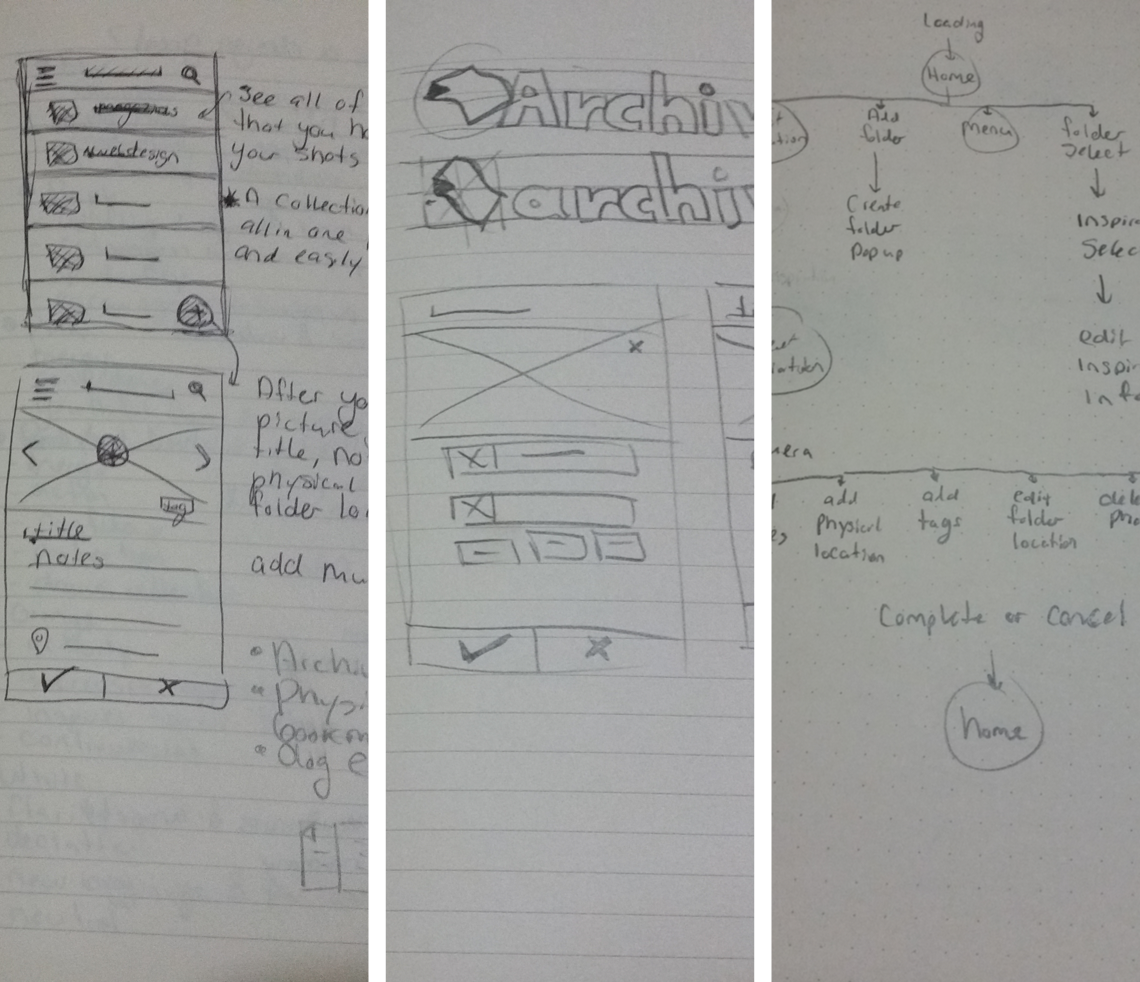 magazines
webdesign
See all of
that you h
you shots
A Collectio
all in one
and easily
After yo
picture
title, no
physical
folder lo
tag
title
notes
add mu
Archi
Physi
bookm
dog e
Archiv
archiv
Loading
Home
tion
Add
folder
Menu
folder
Select
Create
folder
Popup
Inspir
Selec
edit
Inspir
Info
mera
add
physical
location
add
tags
edit
folder
location
dele
pho
Complete or Cancel
home